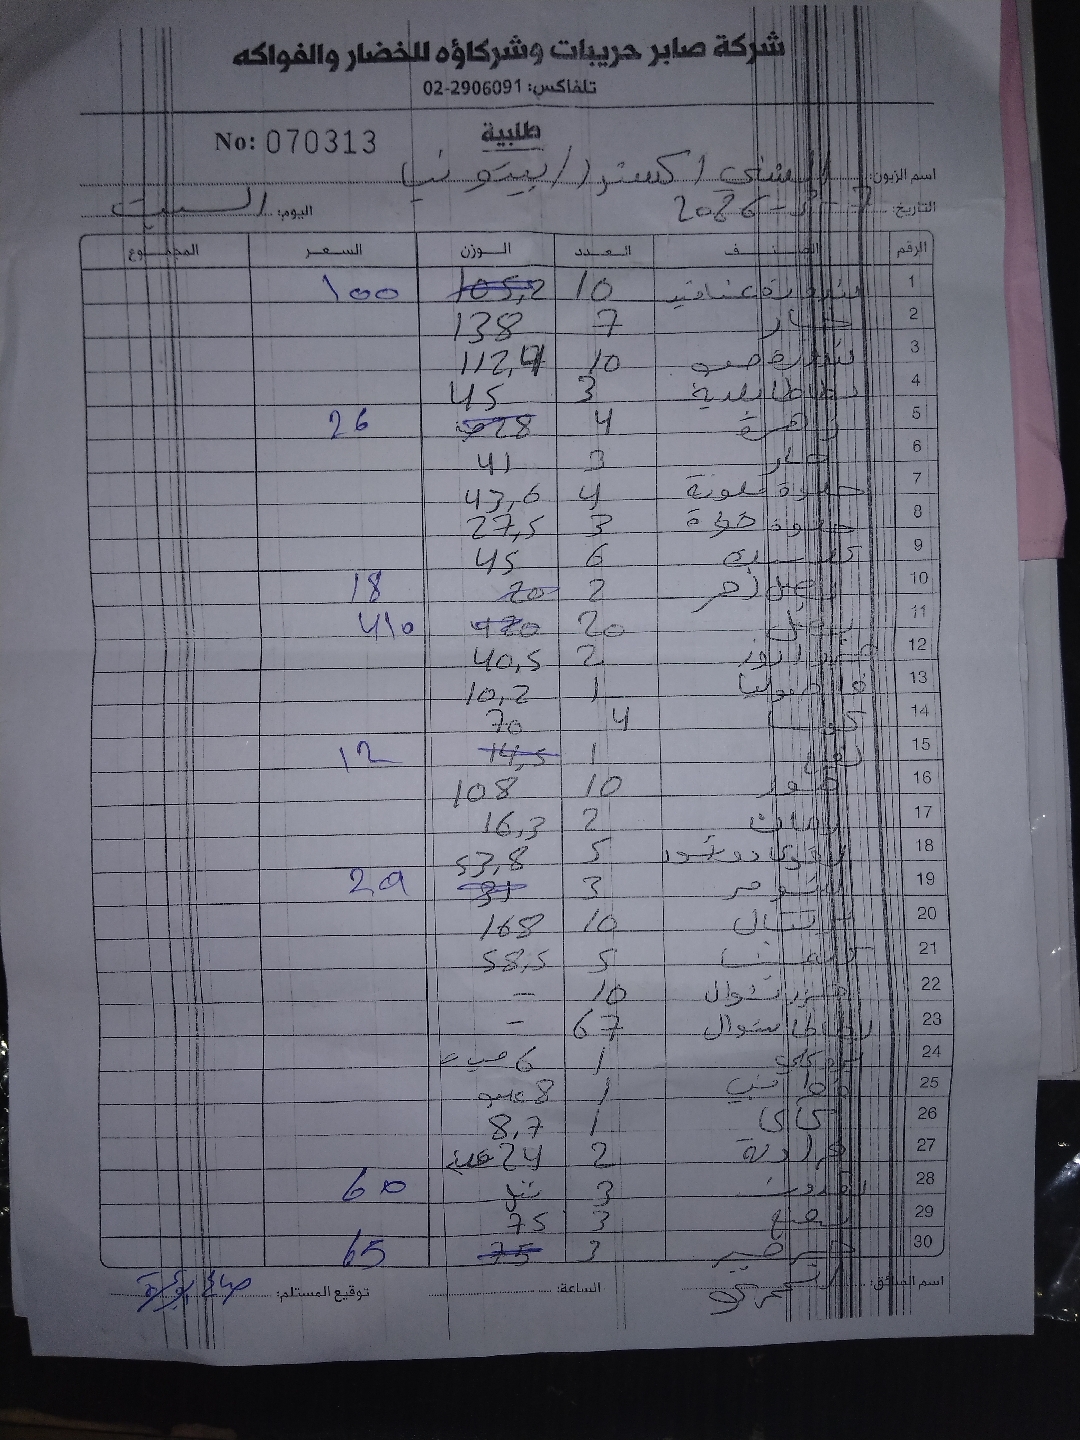 شركة صابر حريبات وشركاؤه للخضار والفواكه
تلفاكس: 02-2906091
طلبية
No: 070313
اسم الزبون: الشني اكسترا / بيتونيا
التاريخ: 2026
اليوم: السبت
الرقم الصنف العدد الوزن السعر المجموع
1 بندورة عناقيد 10 105,2 100
2 خيار 7 138
3 بندورة 10 112,4
4 بطاطا بلدية 3 45
5 زهرة 4 28 26
6 3 41
7 حلوة ملونة 4 43,6
8 حلوة 3 27,5
9 6 45
10 بصل احمر 2 20 18
11 بصل 20 420 410
12 2 40,5
13 فاصوليا 1 10,2
14 كوسا 4 70
15 1 14,5 12
16 موز 10 108
17 رمان 2 16,3
18 5 53,8
19 3 31 29
20 10 168
21 كلمنتينا 5 58,5
22 جزر شوال 10 -
23 بطاطا شوال 67 -
24 بروكلي 1 6
25 1 8
26 كاكا 1 8,7
27 2 24
28 3 60
29 3 75
30 3 75 65
اسم السائق:
الساعة:
توقيع المستلم: